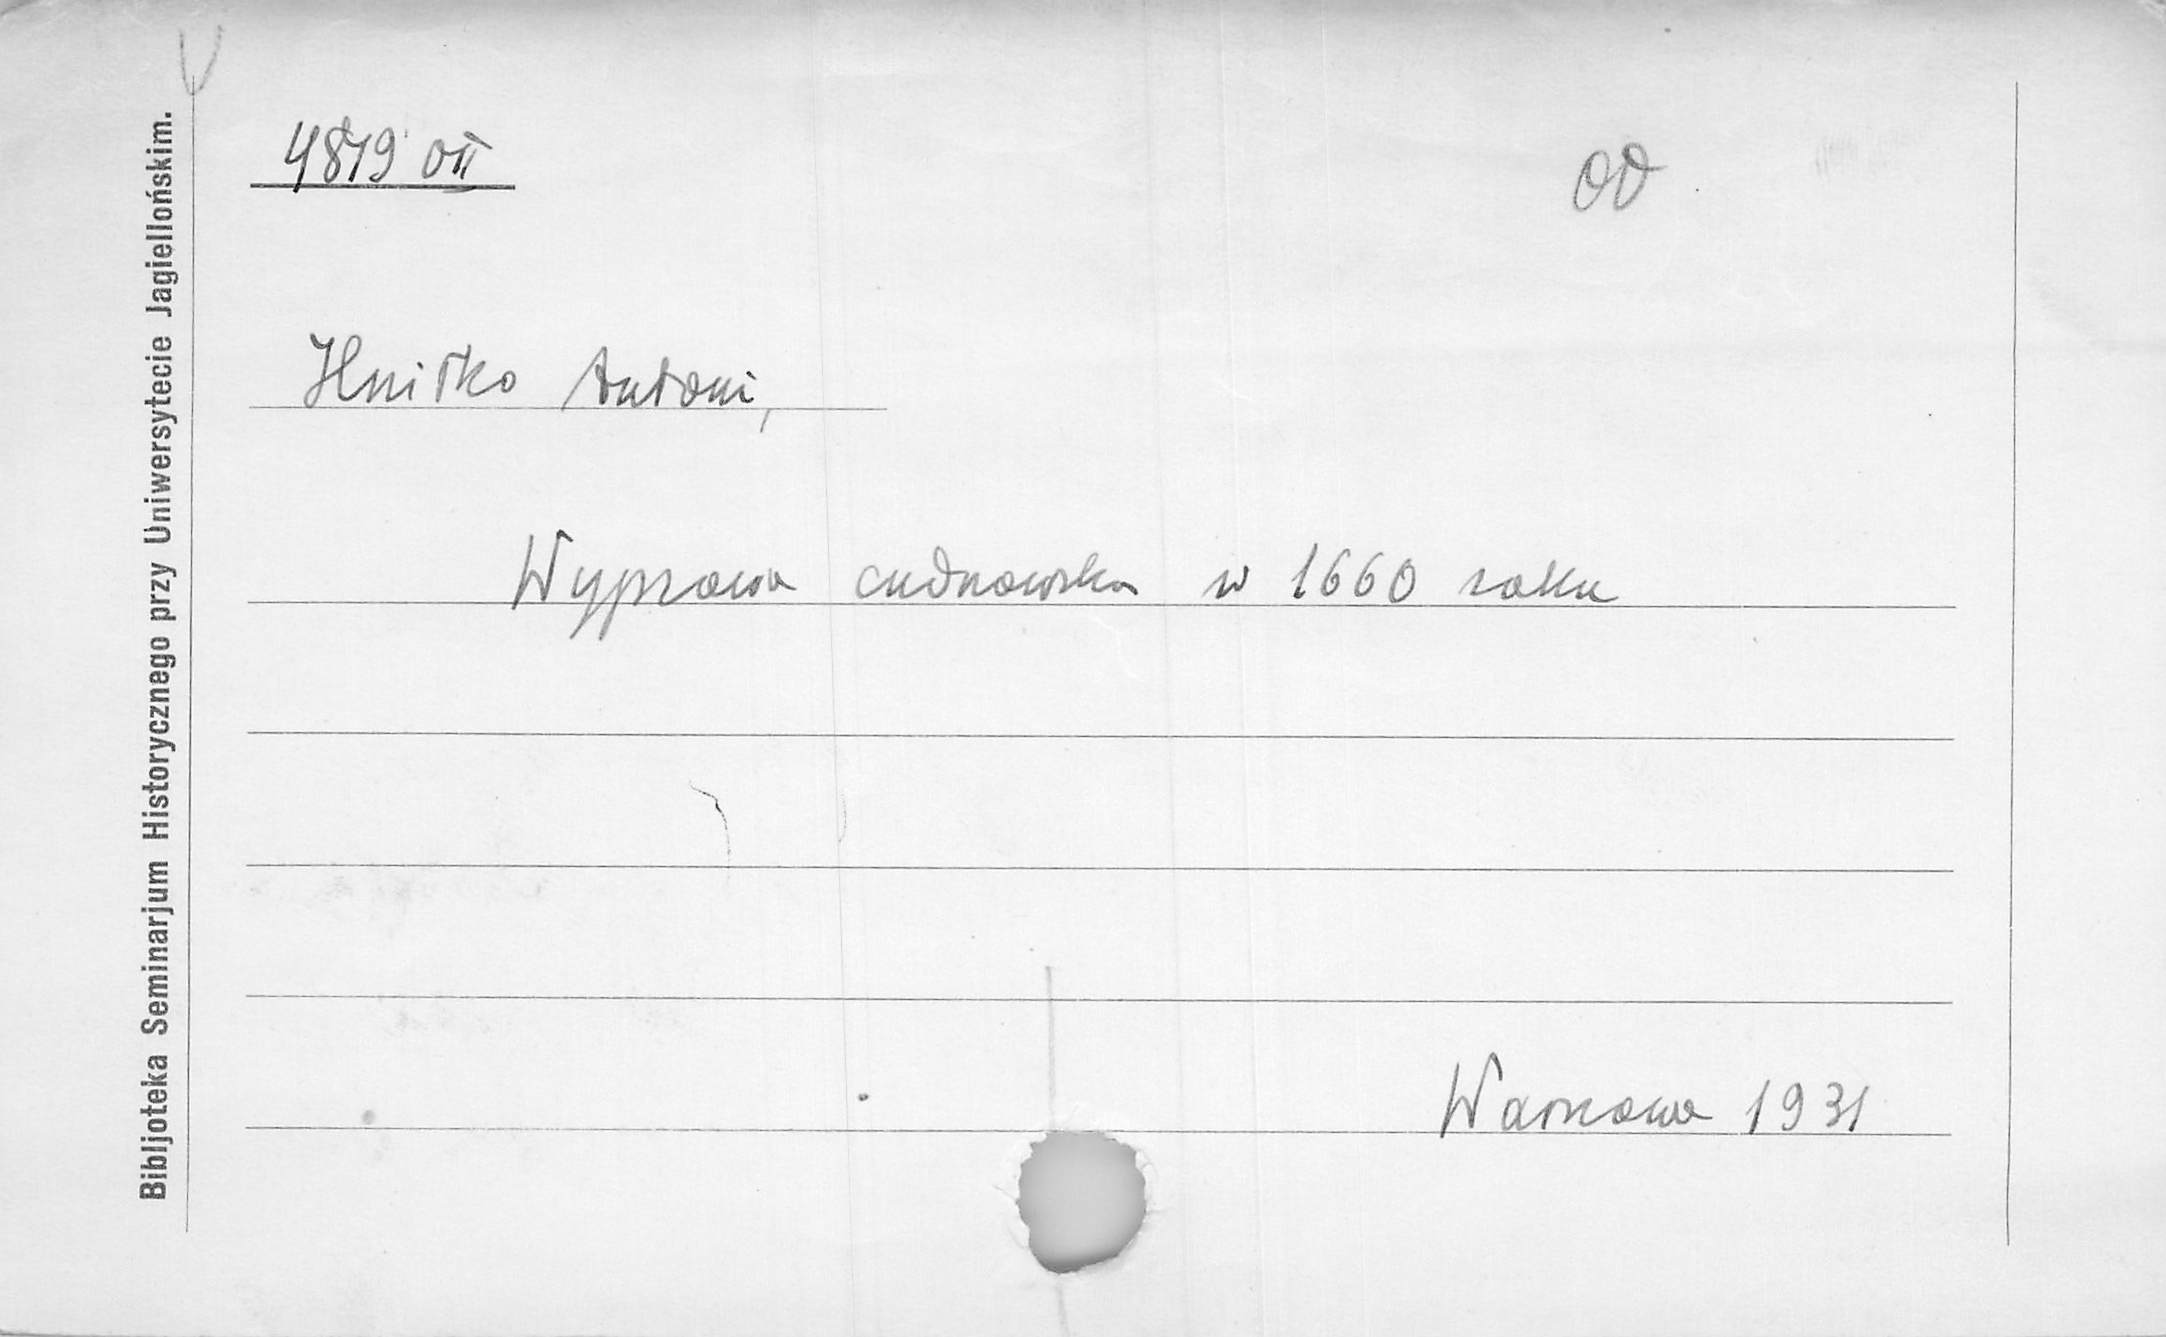 4819 OII
OO
Hniłko Antoni,
Wyprawa cudnowska w 1660 roku
Warszawa 1931
Bibljoteka Seminarjum Historycznego przy Uniwersytecie Jagiellońskim.